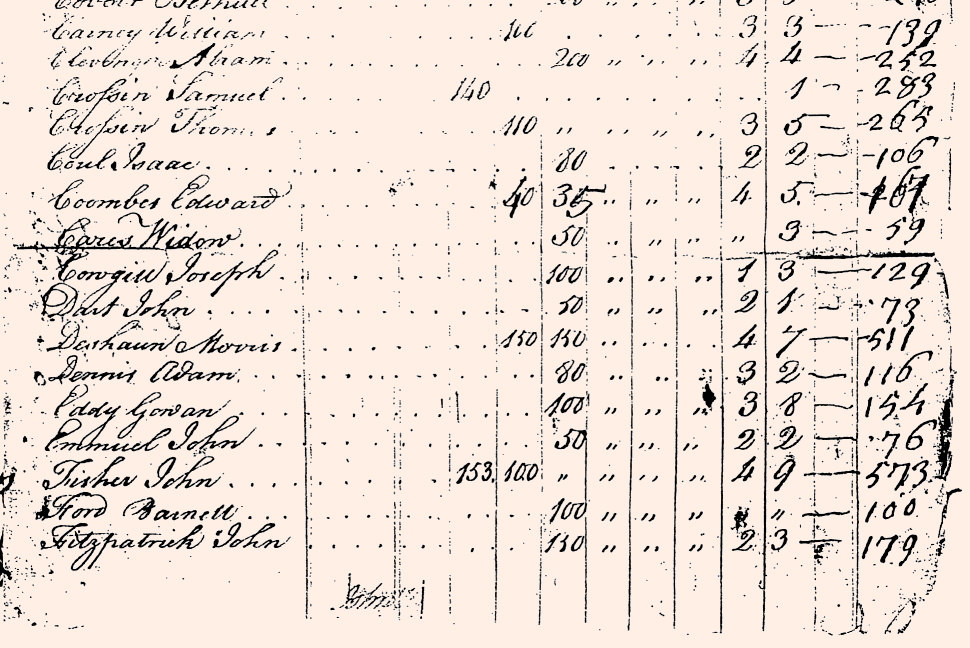 Carney William 3 3 — 139
Abram 200 " " " 4 4 — 252
Crossin Samuel 140 1 - 283
Crossin Thomas 110 " " " " 3 5 — 265
Coul Isaac 80 2 2 — 106
Coombes Edward 40 35 " " " 4 5 — 167
Widow 50 " " " 3 — 59
Cowgill Joseph 100 " " " 1 3 — 129
Dart John 50 " " " 2 1 — 73
Deshaun Morris 150 150 " " " 4 7 — 511
Dennis Adam 80 " " 3 2 — 116
Eddy Gowan 100 " " " 3 8 — 154
Emmuel John 50 " " " 2 2 — 76
Fisher John 153 100 " " " " 4 9 — 573
Ford Barnett 100 " " " " — 100
Fitzpatrick John 150 " " " 2 3 — 179